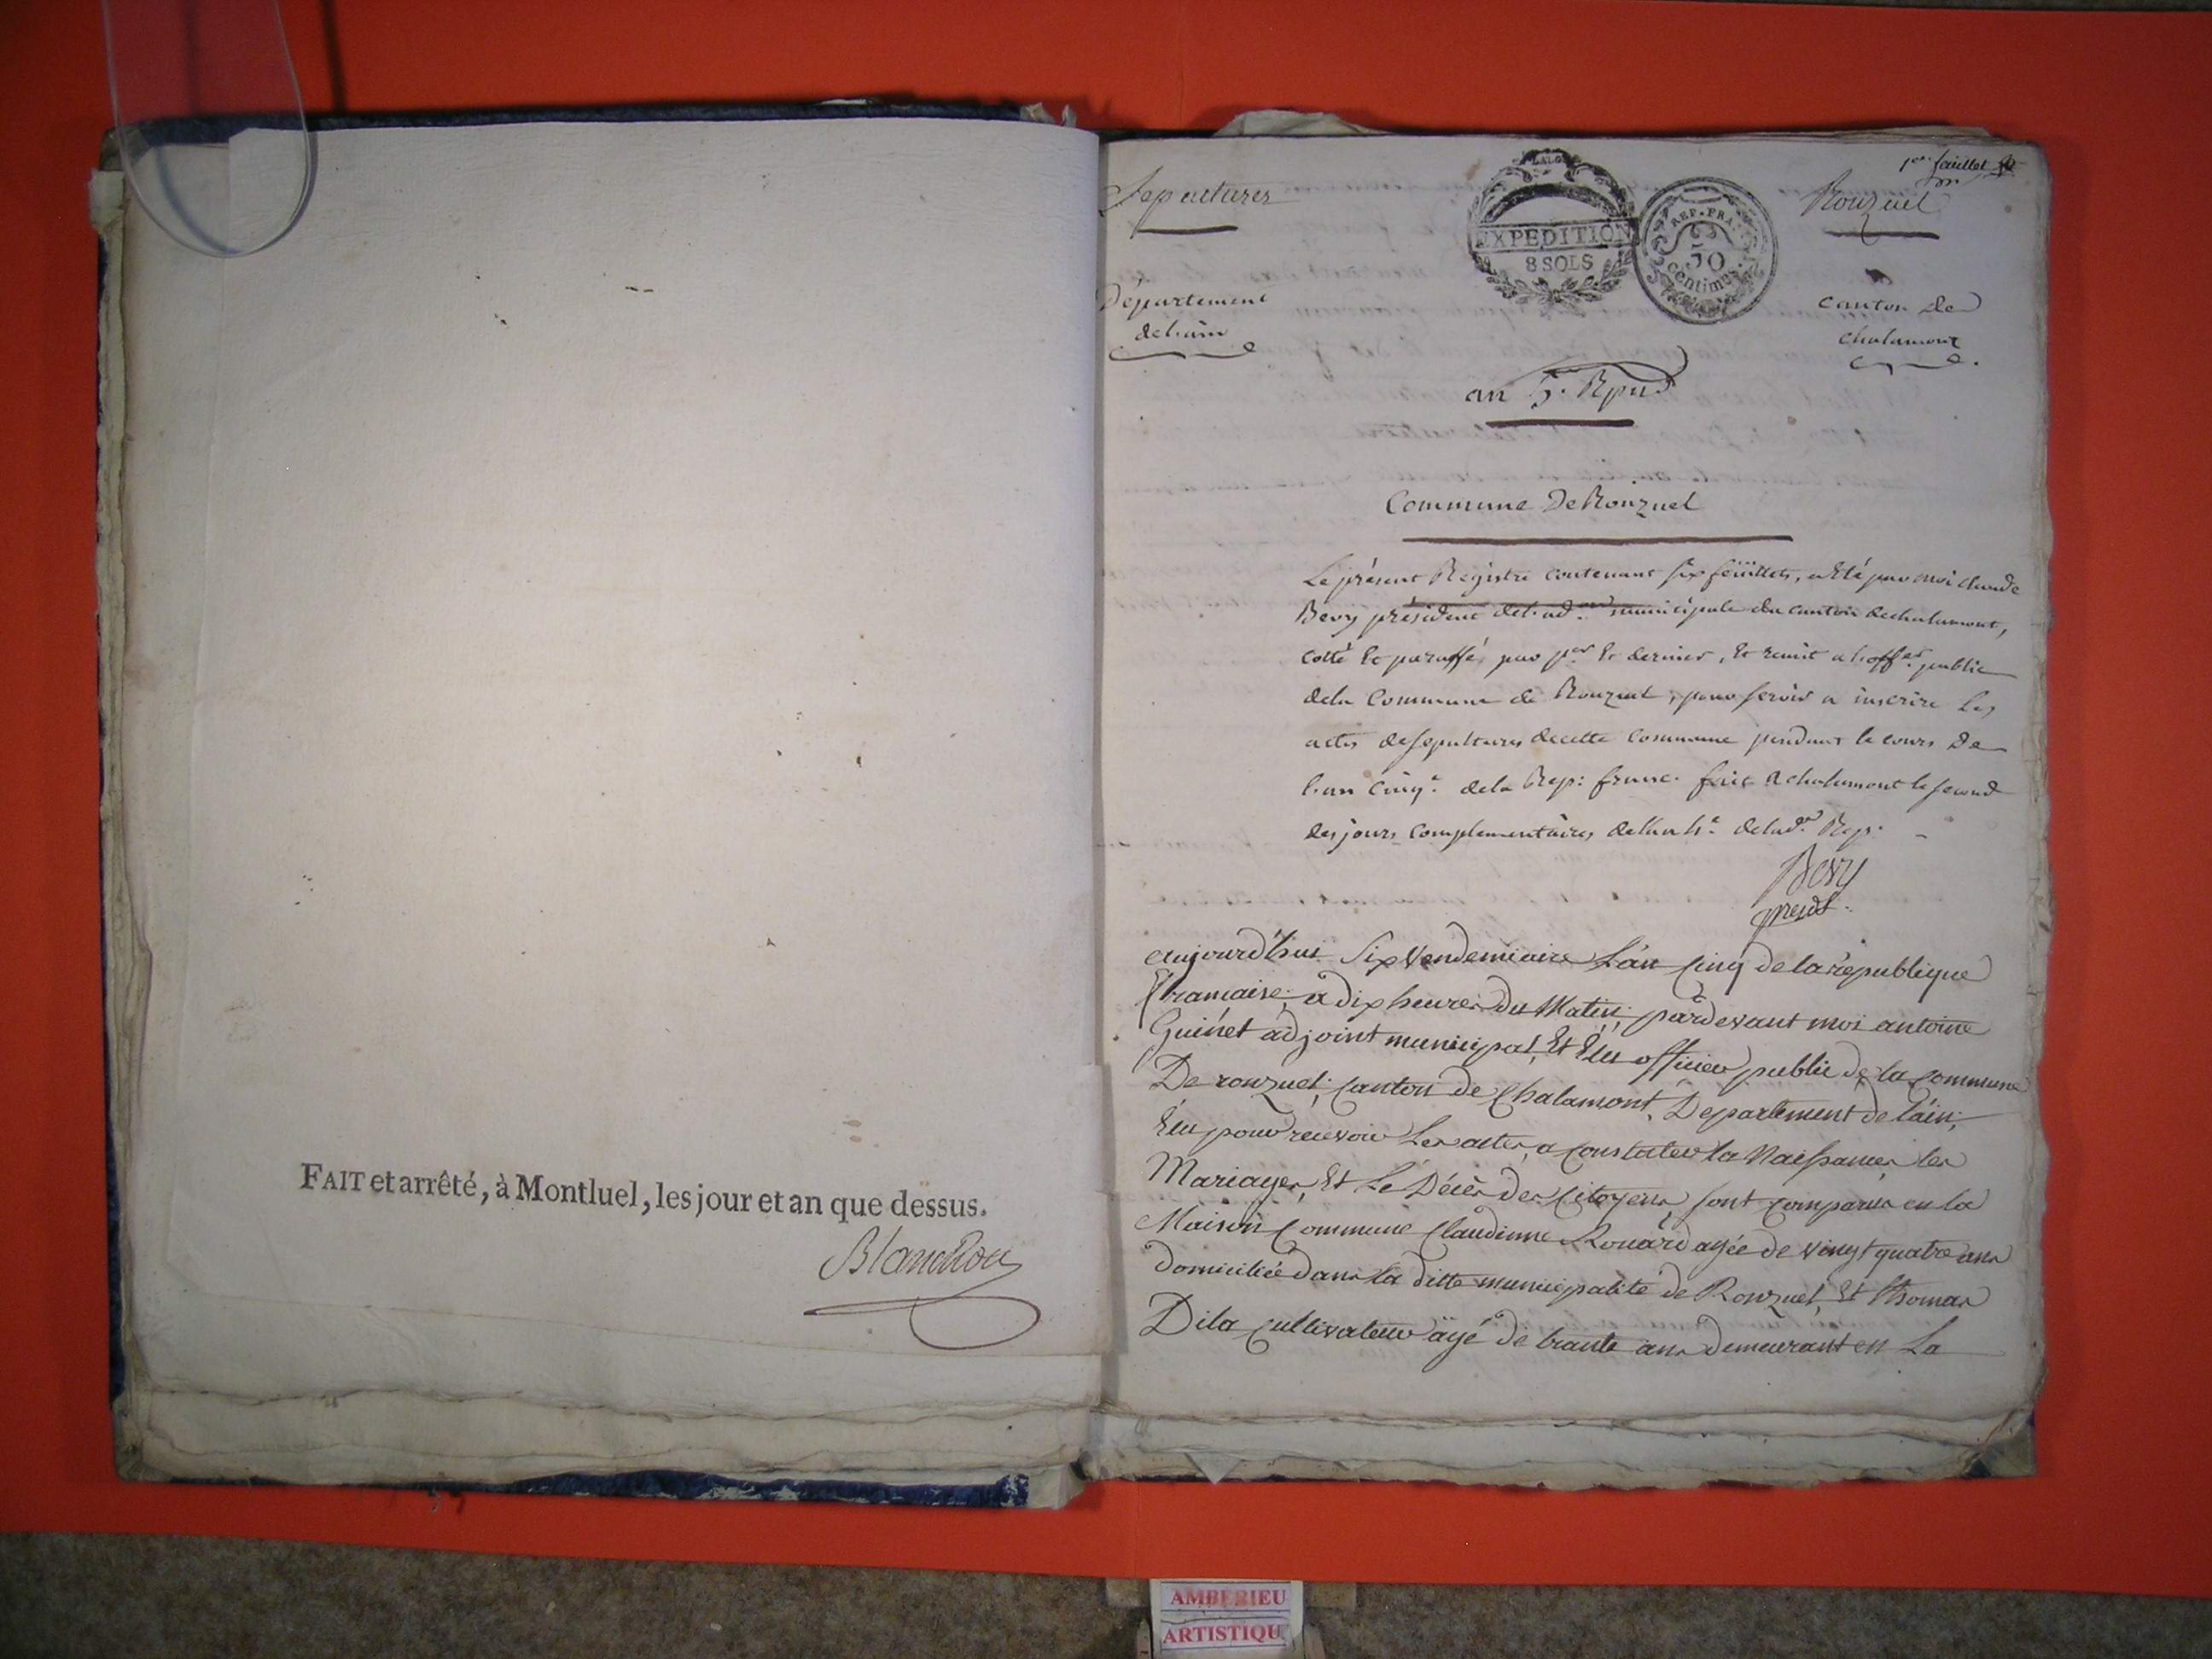 FAIT et arrêté, à Montluel, les jour et an que dessus.
Blanchon
Sepultures
EXPEDITION
8 SOLS
REP. FRA.
50
centimes
1er. feuillet
Ronzuel
Département
de l'ain
canton de
chalamont
an 5e. Rpud
Commune De Ronzuel
Le présent Registre contenant six feüillets, a Eté par moi claude
Bevy président de l'ad.on municipale du canton de chalamont,
cotté & paraffé, par p.er & dernier, & remit a l'off.er public
de la Commune de Ronzuel, pour servir a inscrire les
actes de sepultures de cette Commune pendant le cours De
l'an cinq.e de la Rep: franc. fait a chalamont le second
des jours complementaires de l'an 4.e de lad.e Rep.
Bevy
presdt.
aujourd'hui Six Vendemiaire L'an Cinq de la republique
francaise, a dix heures du Matin, pardevant moi antoine
Guinet adjoint municipal, Et Elu officier public de la commune
De ronzuel, Canton de Chalamont, Departement de l'ain,
Elu pour recevoir Les actes, a Constater la Naissance, les
Mariages, Et Le Décès des Citoyens, sont comparus en la
Maison Commune Claudinne Rouard agée de vingt quatre ans
domiciliée dans la ditte municipalité de Ronzuel, Et thomas
Dila Cultivateur agé de trante ans demeurant en La
AMBERIEU
ARTISTIQU